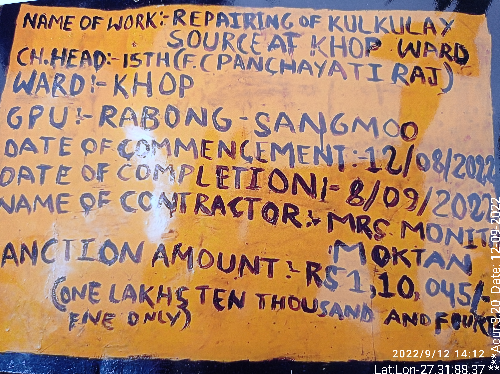 NAME OF WORK:- REPAIRING OF KULKULAY
SOURCE AT KHOP WARD
CH.HEAD:- 15TH (F.C PANCHAYATI RAJ)
WARD:- KHOP
GPU:- RABONG-SANGMOO
DATE OF COMMENGEMENT:-12/08/2022
DATE OF COMPLETION:- 8/09/2022
NAME OF CONTRACTOR:- MRS MONIT
MOKTAN
ANCTION AMOUNT:- RS 1,10,045/-
(ONE LAKHS TEN THOUSAND AND FOURT
FIVE ONLY)
2022/9/12 14:12
Lat:Lon-27.31:88.37
Date: 12-09-2022